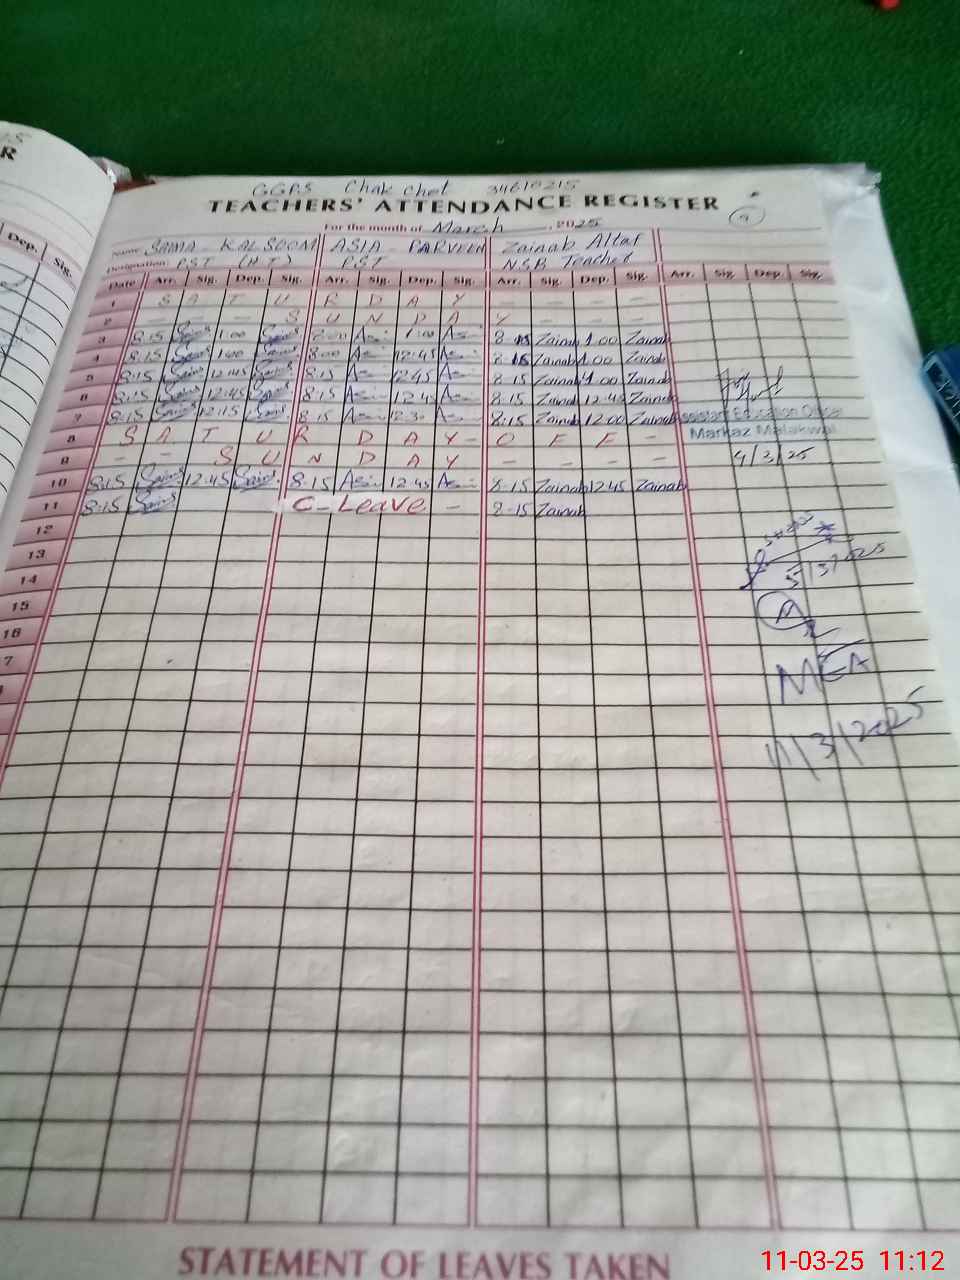 GGPS Chak Chet 34610215
TEACHERS' ATTENDANCE REGISTER
For the month of March, 2025 (9)
Name SAIMA - KALSOOM ASIA - PARVEEN Zainab Altaf
Designation PST (HT) PST NSB Teacher
Date Arr. Sig. Dep. Sig. Arr. Sig. Dep. Sig. Arr. Sig. Dep. Sig. Arr. Sig. Dep. Sig.
1 S A T U R D A Y - - - -
2 - - - S U N D A Y - - -
3 8:15 1:00 8:00 As 1:00 As 8:15 Zainab 1:00 Zainab
4 8:15 1:00 8:00 As 12:45 As 8:15 Zainab 1:00 Zainab
5 8:15 12:45 8:15 As 12:45 As 8:15 Zainab 1:00 Zainab
6 8:15 12:45 8:15 As 12:45 As 8:15 Zainab 12:45 Zainab
7 8:15 12:15 8:15 As 12:30 As 8:15 Zainab 12:00 Zainab
Assistant Education Officer
Markaz Malakwal
8 S A T U R D A Y - O F F -
9 - - S U N D A Y - - - -
4/3/25
10 8:15 12:45 8:15 As 12:45 As 8:15 Zainab 12:45 Zainab
11 8:15 C-Leave - 8:15 Zainab
12
13
5/3/2025
14
15
16
7
MEA
11/3/2025
STATEMENT OF LEAVES TAKEN
11-03-25 11:12
R
Dep. Sig.